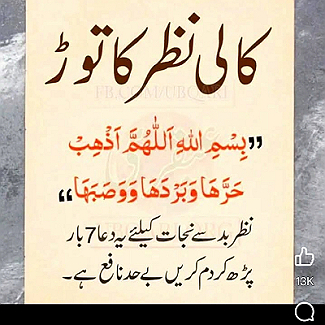 کالی نظر کا توڑ
FB.COM/UBQARI
”بِسْمِ اللهِ اَللّٰهُمَّ اَذْهِبْ
حَرَّهَا وَبَرْدَهَا وَوَصَبَهَا“
نظر بد سے نجات کیلئے یہ دعا 7 بار
پڑھ کر دم کریں بے حد نافع ہے۔
13K